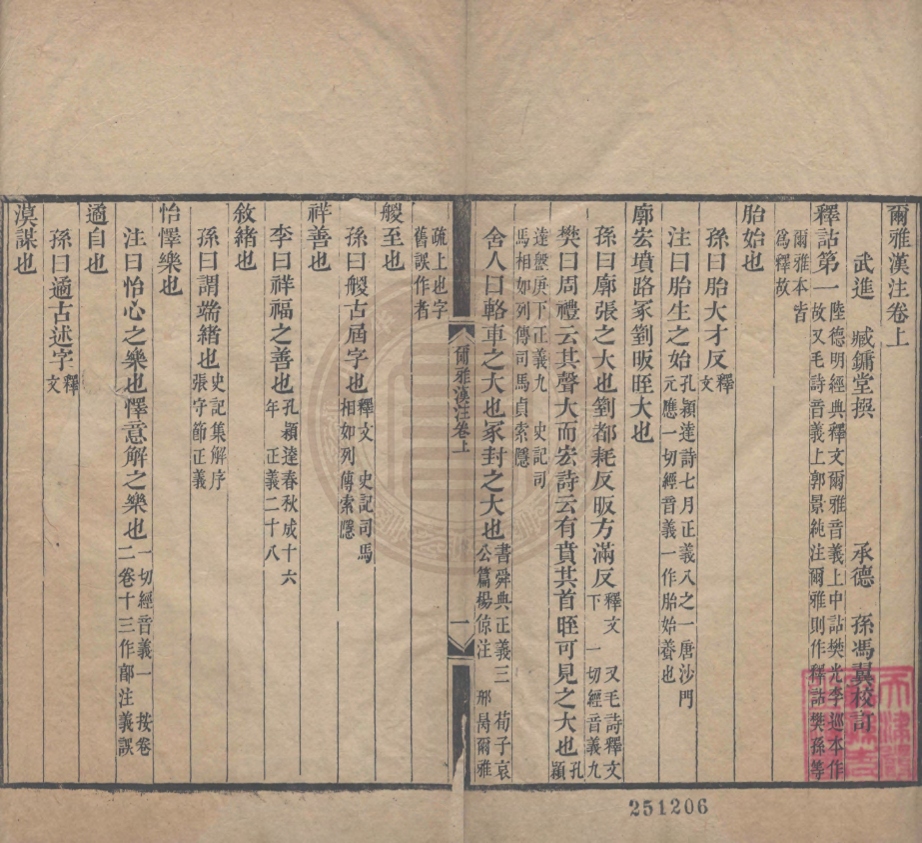 爾雅漢注卷上
武進 臧鏞堂撰 承德 孫馮翼校訂
釋詁第一陸德明經典釋文爾雅音義上中詁樊光李巡本作
故又毛詩音義上郭景純注爾雅則作釋詁樊孫等
爾雅本皆
爲釋故
胎始也
孫曰胎大才反釋
文
注曰胎生之始孔穎達詩七月正義八之一唐沙門
元應一切經音義一作胎始養也
廓宏墳路冢劉昄晊大也
孫曰廓張之大也劉都耗反昄方滿反釋文 又毛詩釋文
下 一切經音義九
樊曰周禮云其聲大而宏詩云有賁其首晊可見之大也孔
穎
達盤庚下正義九 史記司
馬相如列傳司馬貞索隱
舍人曰輅車之大也冢封之大也書舜典正義三 荀子哀
公篇楊倞注 邢昺爾雅
爾雅漢注卷上
一
疏上也字
舊誤作者
艐至也
孫曰艐古屆字也釋文 史記司馬
相如列傳索隱
祥善也
李曰祥福之善也孔穎達春秋成十六
年 正義二十八
敘緒也
孫曰謂端緒也史記集解序
張守節正義
怡懌樂也
注曰怡心之樂也懌意解之樂也一切經音義一 按卷
二卷十三作部注義誤
遹自也
孫曰遹古述字釋
文
漠謀也
251206